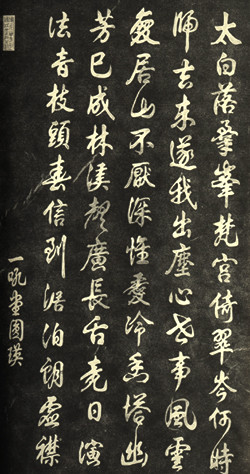 太白蔭羣峯梵宮倚翠岑何時
歸去來遂我出塵心世事風雲
變居山不厭深惟愛冷香塔幽
芳已成林溪聲廣長舌竟日演
法音枝頭春信到澹泊朗虛襟
一吼堂圓瑛